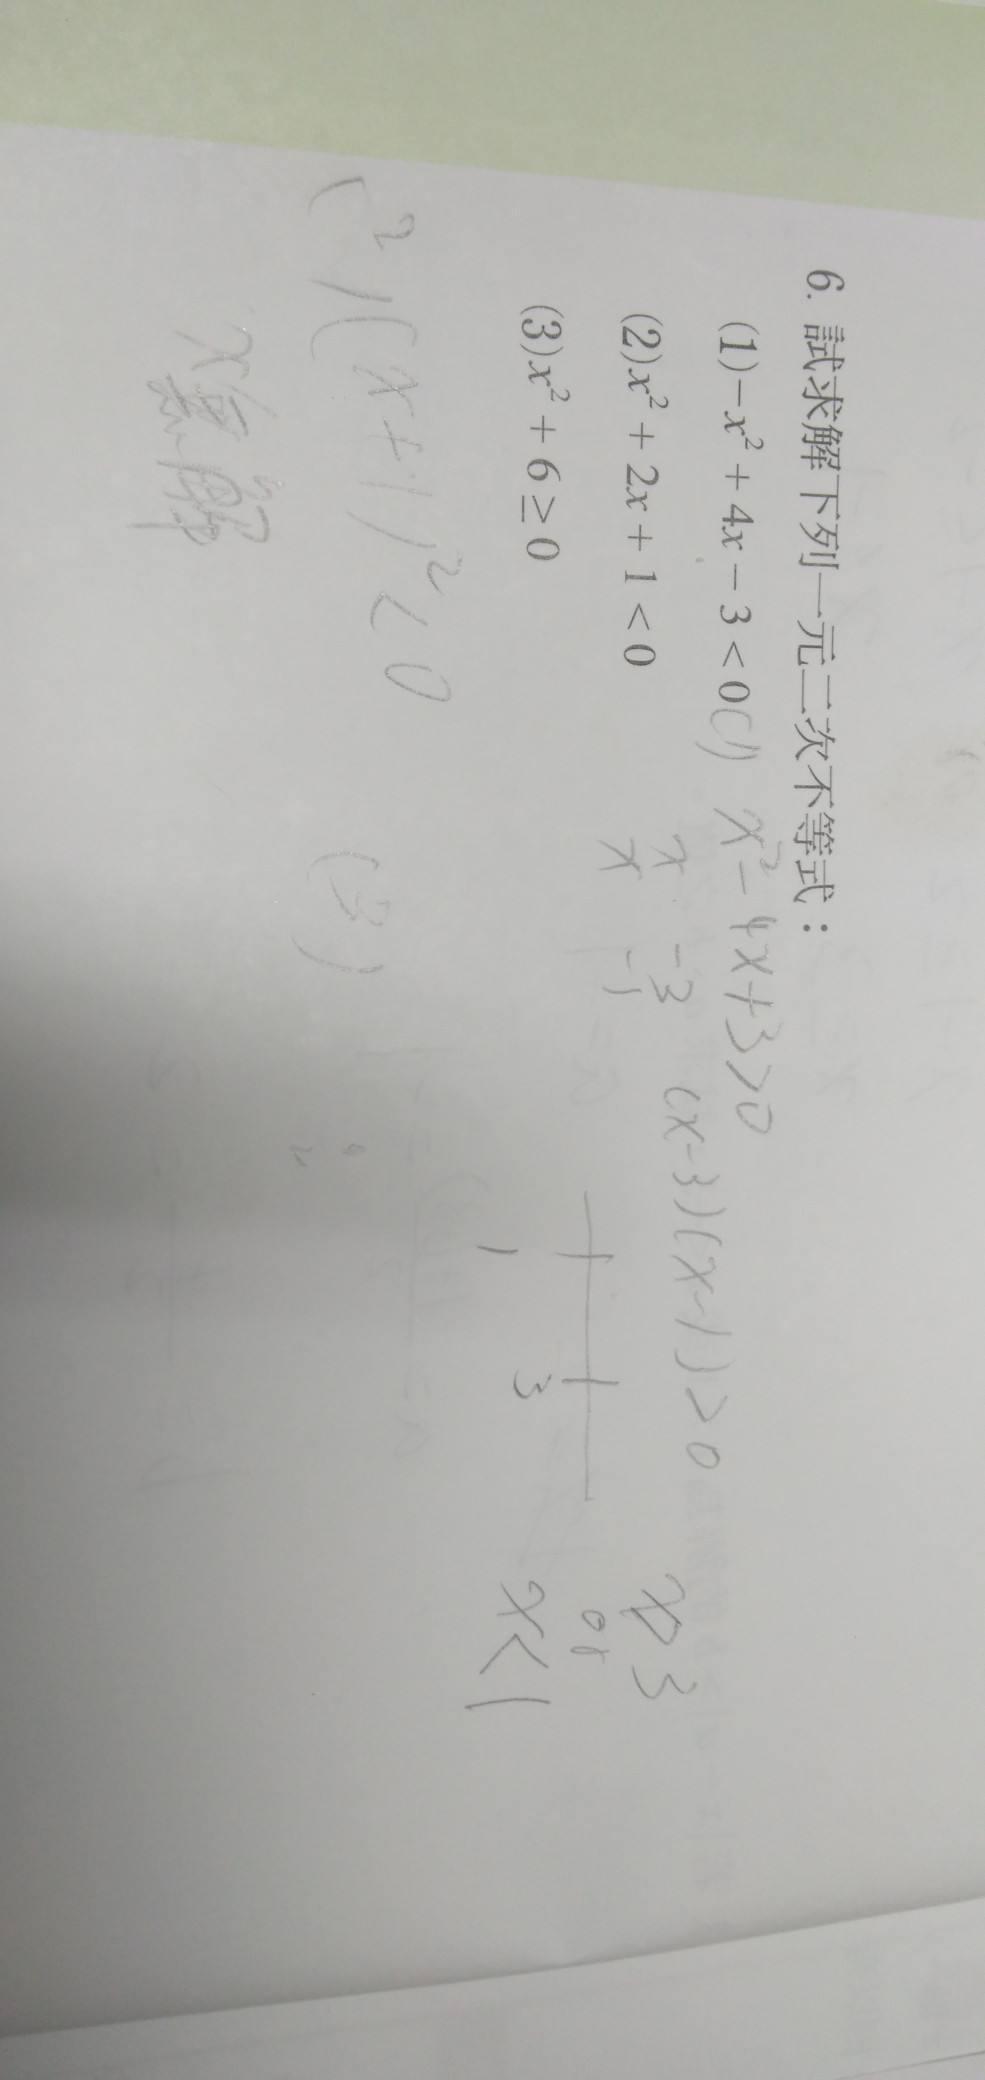 6. 試求解下列一元二次不等式：
(1)−x²+4x−3<0
(1) x²−4x+3>0
x −3
x −1
(x−3)(x−1)>0
1 3
x>3
or
x<1
(2)x²+2x+1<0
(3)x²+6≥0
(2) (x+1)²<0
x無解
(3)